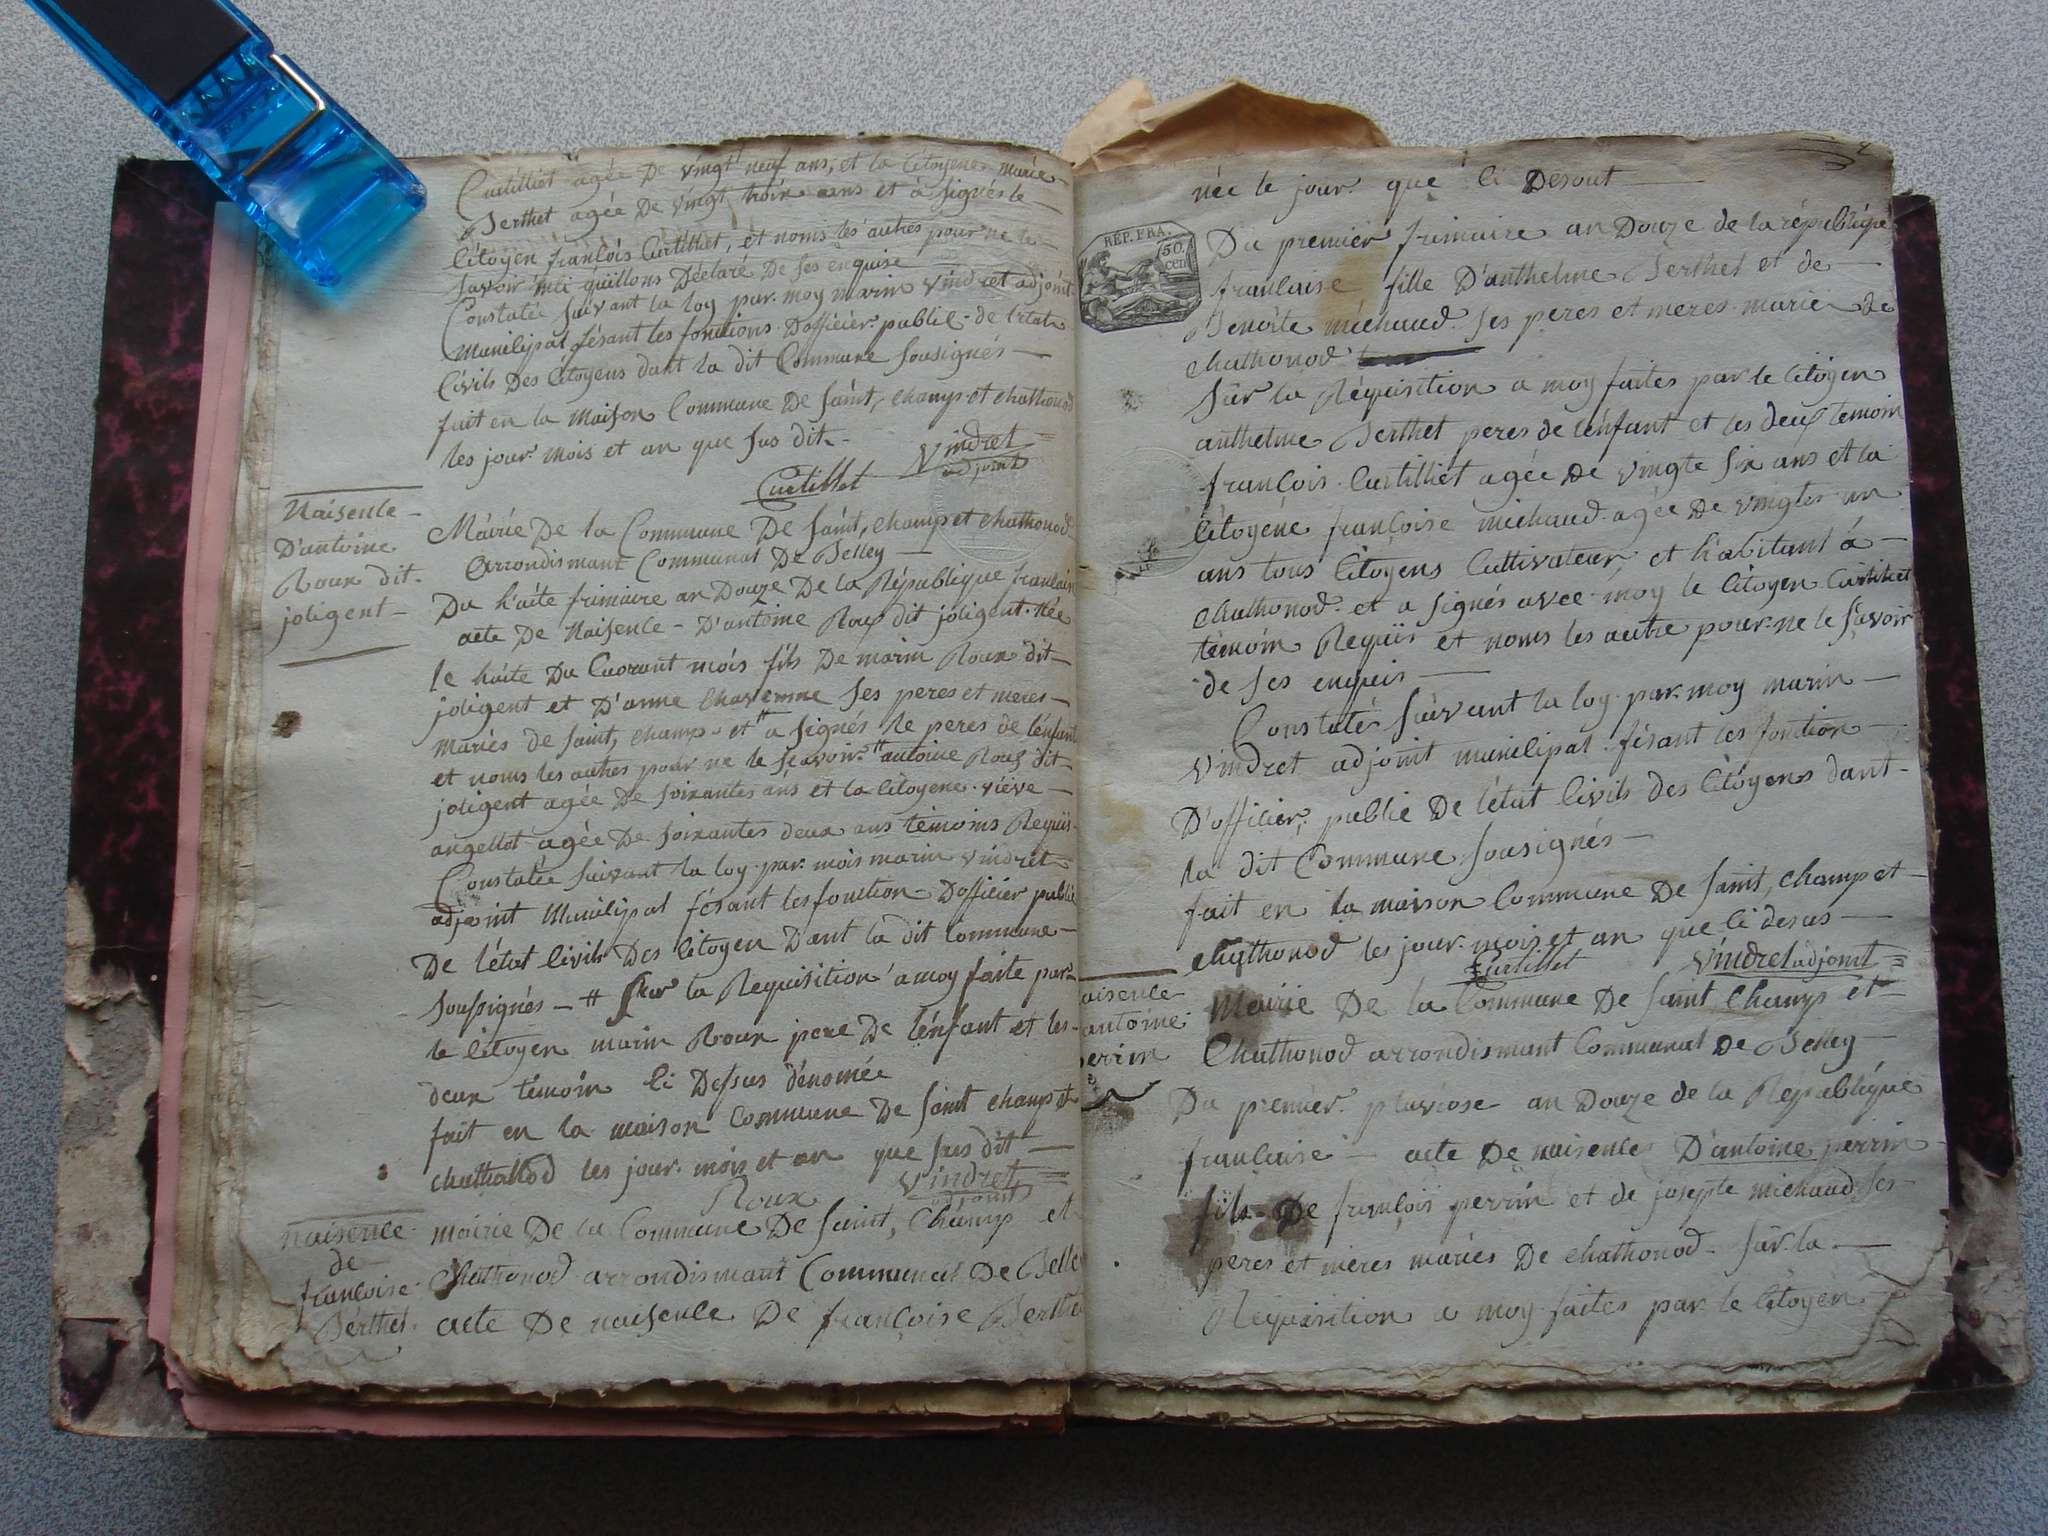 Curtilliet agée De vingt neuf ans, et la Citoyene marie
Berthet agée De vingt trois ans et a signés le
Citoyen françois Curtilliet, et noms les autres pour ne le
savoir Déclaré De ses enquise
Constatée suivant la loy par moy marin Vindret adjoint
Municipal fésant les fonctions D'officier public de l'état
Civils Des Citoyens dant la dit Commune sousignés
fait en la Maison Commune De saint, champ et chathonod
les jour mois et an que sus dit
Vindret
adjoint
Curtillet
Naisence
D'antoine
Roux dit
joligent
Mairie De la Commune De saint, champ et chathonod
Arrondismant Communal De Belley
Du huite frimaire an Douze De la République francaise
acte De Naisence D'antoine Roux dit joligent née
le huite Du Courant mois fils De marin Roux dit
joligent et D'anne Charenne ses peres et meres
mariés de saint, champ et # a signés le peres de l'énfant
et noms les autres pour ne le scavoir # antoine Roux dit
joligent agée De soixantes ans et la Citoyene viève
angellot agée De soixantes deux ans témoins Requis
Constatée suivant la loy par mois marin vindret
adjoint Municipal fésant les fonction D'officier public
De l'état Civils Des Citoyen Dant la dit Commune
soussignés # sur la Requisition a moy faite par
le Citoyen marin Roux pere De l'énfant et les
deux témoin Ci Dessus dénomée
fait en la maison Commune De saint champ et
chathonod les jour mois et an que sus dit
Roux Vindret
adjoint
naisence
de
françoise
Berthet
mairie De la Commune De saint, Champ et
Chathonod arrondismant Communal De Belley
acte De naisence De françoise Berthet
née le jour que Ci Desout
RÉP. FRA.
50 cen
Du premier frimaire an Douze de la républiqué
francaise fille D'anthelme Berthet et de
Benoite michaud ses peres et meres mariés de
chathonod
sur la Réquisition a moy faites par le Citoyen
anthelme Berthet peres de l'énfant et les deux temoin
françois Curtilliet agée De vingte six ans et la
Citoyéne françoise michaud agée De vingtes un
ans tous Citoyens Cultivateur, et habitant á
chathonod et a signés avec moy le Citoyen Curtilliet
témoin Requis et noms les autre pour ne le sçavoir
de ses enqueis
Constatés suivant la loy par moy marin
Vindret adjoint municipal fésant les fonction
D'officier public De l'état Civils des Citoyens dant
la dit Commune sousignés
fait en la maison Commune De saint, champ et
chathonod les jour mois et an que Ci desus
Curtillet Vindret adjoint
aisence
antoine
errin
Mairie De la Commune De saint Champ et
Chathonod arrondismant Communal De Belley
Du premier pluviose an Douze de la République
francaise acte De naisence D'antoine perrin
fils De françois perrin et de josepte michaud ses
peres et mères mariés De chathonod sur la
Réquisition a moy faites par le Citoyen